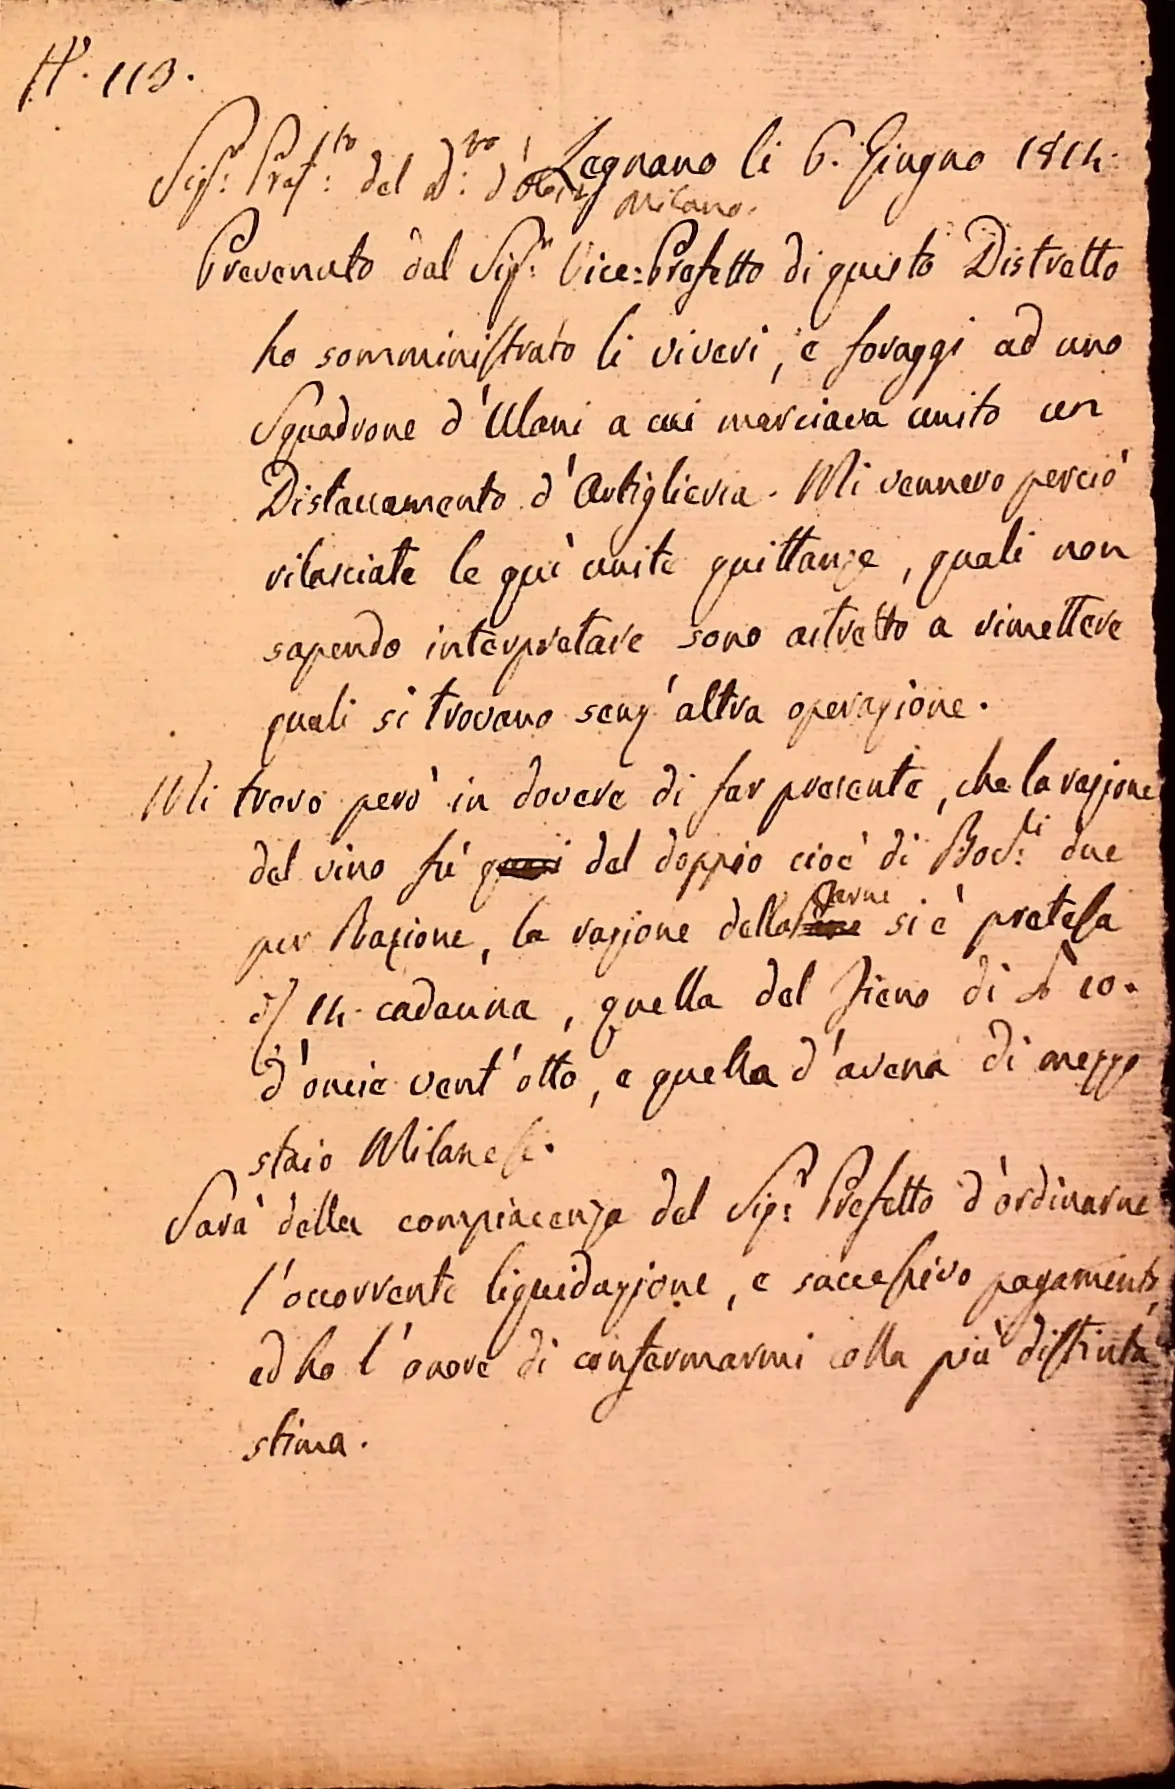 N.° 113.
Legnano li 6. Giugno 1814.
Sig.r Pref.to del d.to d'Olona
Milano.
Prevenuto dal Sig.r Vice=Prefetto di questo Distretto
ho somministrato li viveri, e foraggi ad uno
Squadrone d'Ulani a cui marciava unito un
Distaccamento d'Artiglieria. Mi vennero perciò
rilasciate le quì unite quittanze, quali non
sapendo interpretare sono astretto a rimettere
quali si trovano senz'altra operazione.
Mi trovo però in dovere di far presente, che la razione
del vino fù del doppio cioè di Boc.li due
per Razione, la razione della Carne si è pretesa
14. cadauna, quella del Fieno di 10.
d'oncie vent'otto, e quella d'avena di mezzo
staio Milanese.
Sarà della compiacenza del Sig.r Prefetto d'ordinarne
l'occorrente liquidazione, e successivo pagamento,
ed ho l'onore di confermarmi colla più distinta
stima.